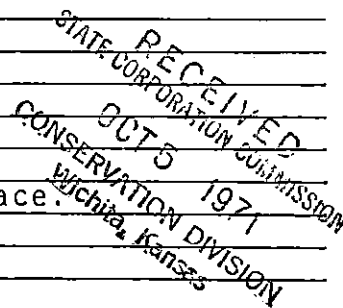 RECEIVED
STATE CORPORATION COMMISSION
OCT 5 1971
CONSERVATION DIVISION
Wichita, Kansas
ace.